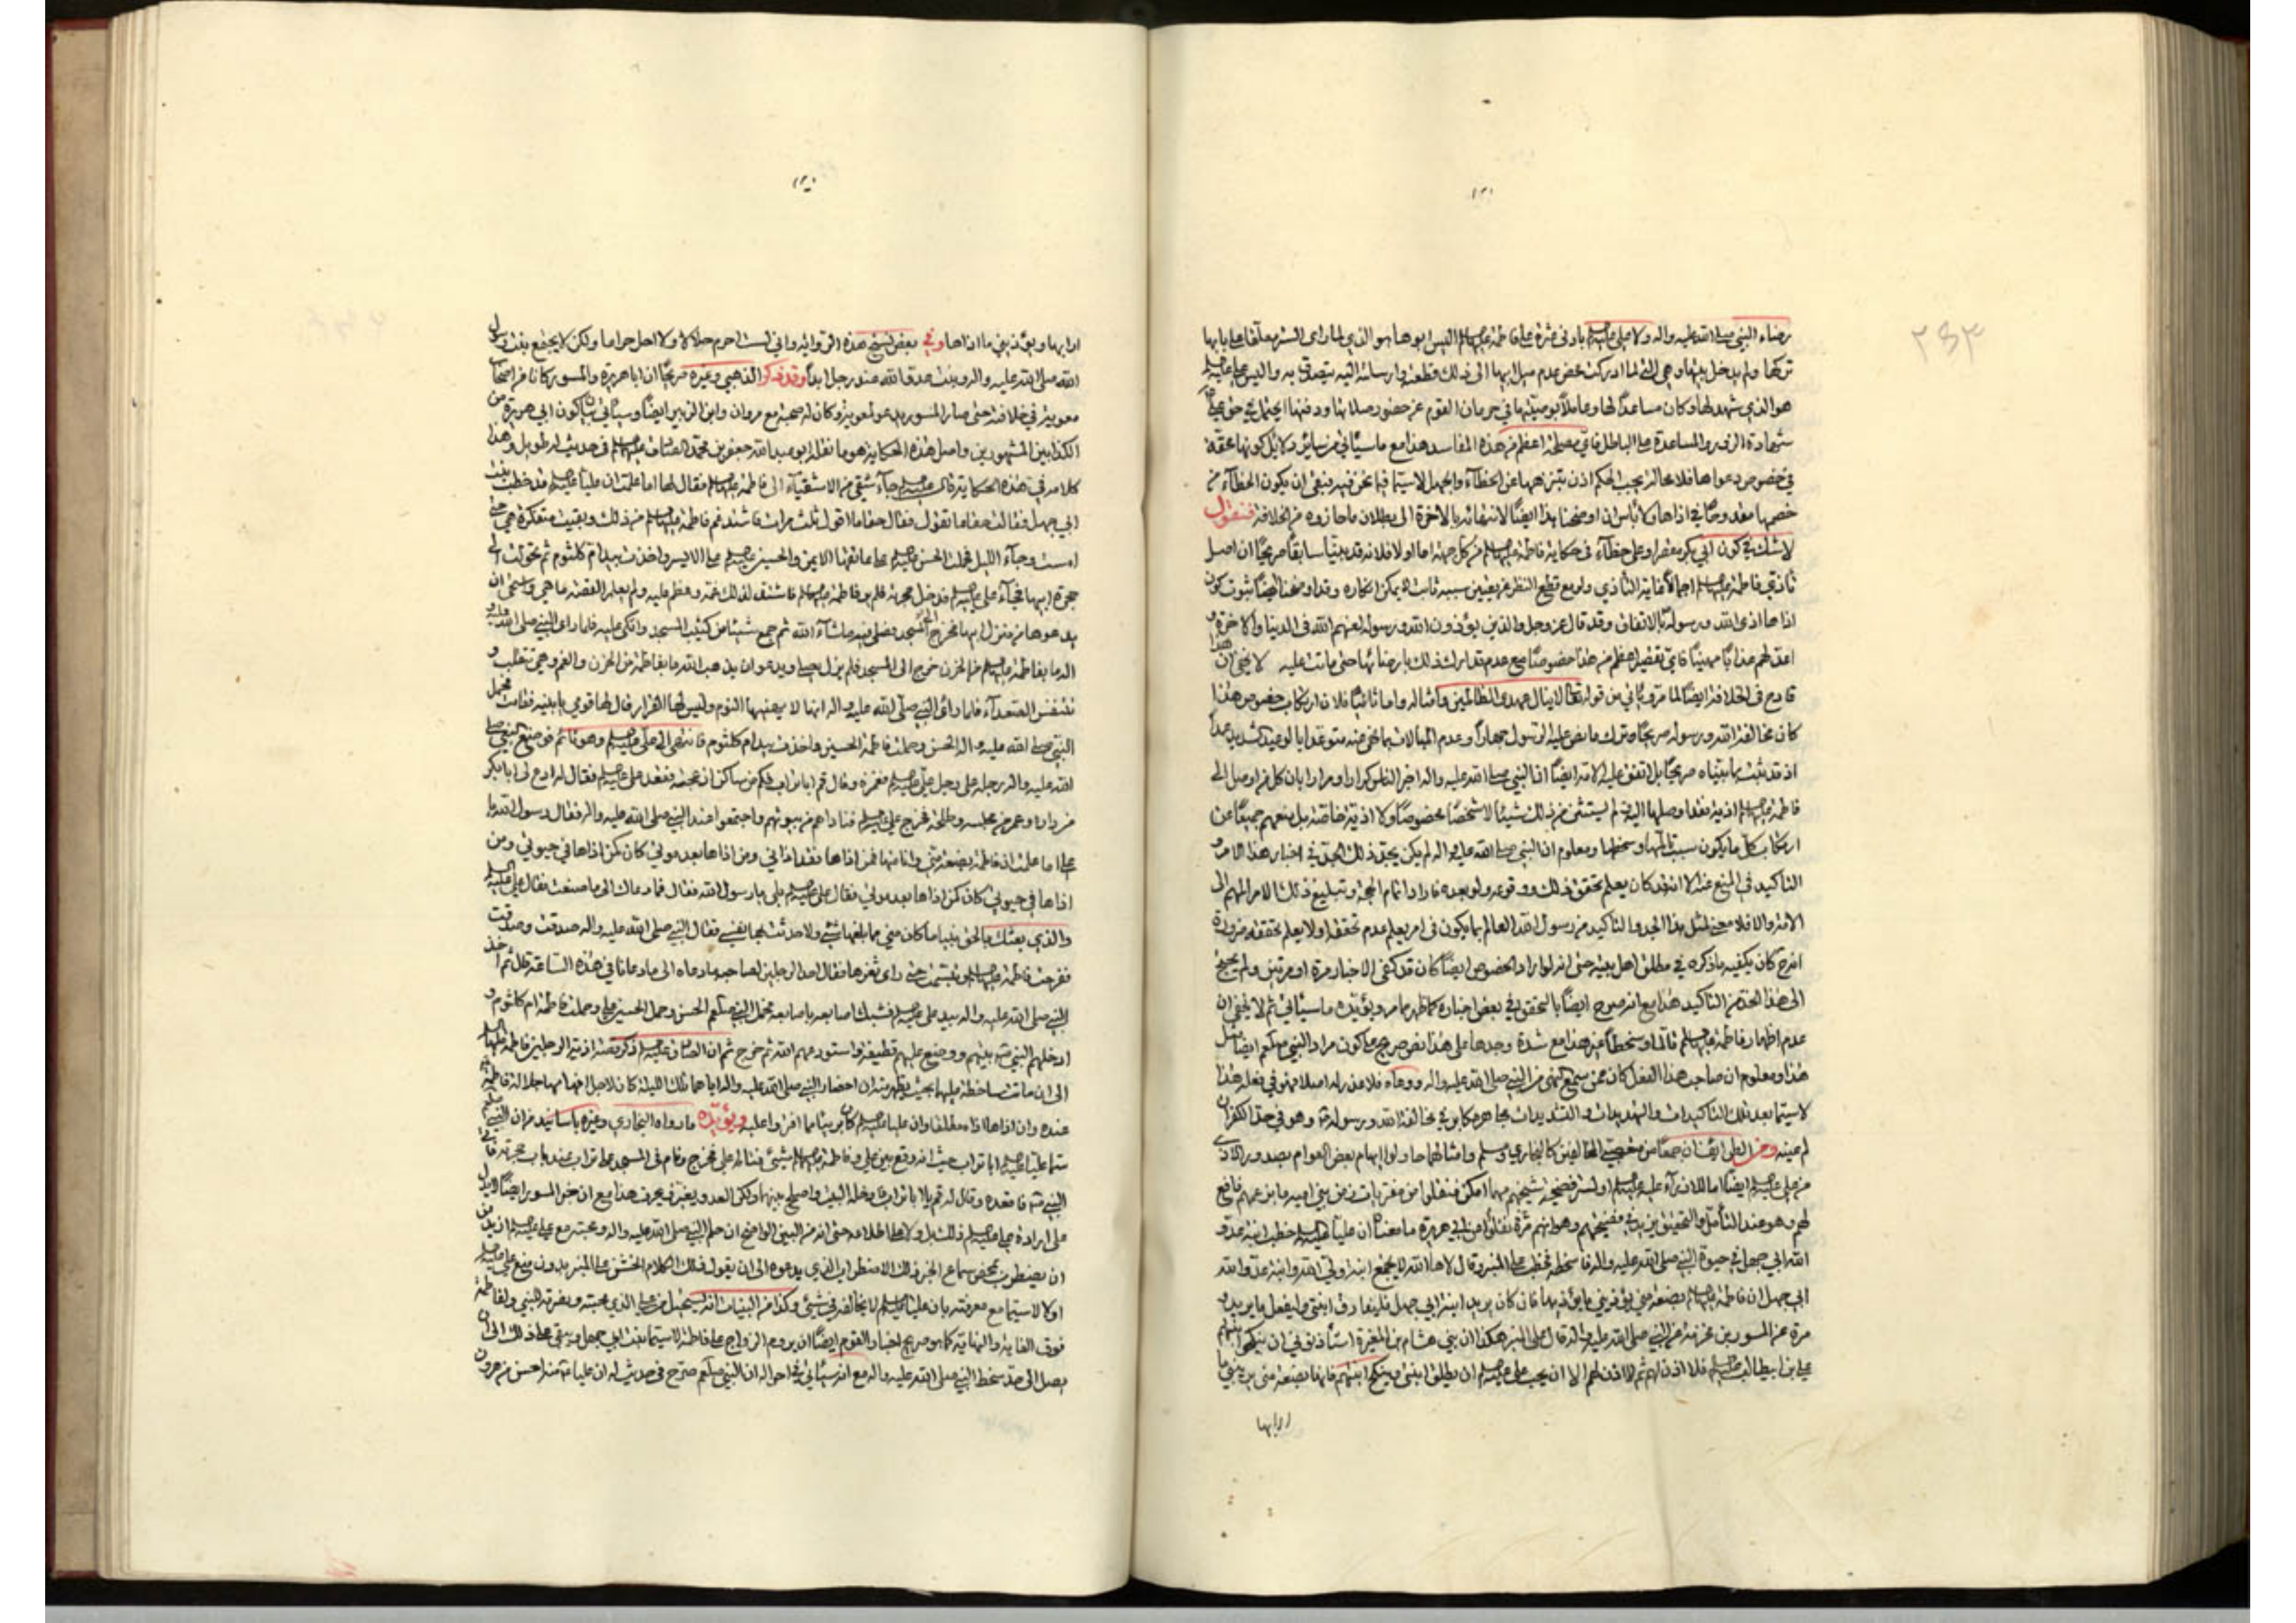 رضاء النبي صلى الله عليه واله ولا علي عليه السلام بادنى على فاطمة عليها السلام اليس ابوها هو الذي لما راى الستر معلقا على بابها
تركها ولم يدخل بيتها وهي التي لما ادركت محض عدم ميل ابيها الى ذلك قطعته وارسلته اليه يتصدق به واليس علي عليه السلام
هو الذي شهد لها وكان مساعدا لها وعاملا بوصيتها في حرمان القوم عن حضور صلاتها ودفنها ايحتمل في حق علي
شهادة الزور والمساعدة على الباطل فاي مصلحة اعظم من هذه المفاسد هذا مع ما سيأتي من سائر دلائل كونها محقة
في خصوص دعواها فلا محالة يجب الحكم اذن بتنزهها عن الخطاء والجهل لا سيما فيما نحن فيه فينبغي ان يكون الخطاء من
خصمها ولا بأس ان اوضحنا هذا ايضا لانتهائه بالاخرة الى بطلان ما حازوه من الخلافة فنقول
لا شك في كون ابي بكر على خطاء في حكاية فاطمة عليها السلام من كل جهة اما اولا فلانه قد بينا سابقا صريحا ان اصل
تأذي فاطمة عليها السلام اجمالا غاية التأذي ولو مع قطع النظر عن تعيين سببه ثابت لا يمكن انكاره وقد اوضحنا ايضا ثبوت كون
اذاها اذى الله ورسوله بالاتفاق وقد قال عز وجل والذين يؤذون الله ورسوله لعنهم الله في الدنيا والاخرة و
اعد لهم عذابا مهينا فاي تقصير اعظم من هذا خصوصا مع عدم تدارك ذلك بارضائها حتى ماتت عليه لا يخفى ان هذا
قادح في الخلافة ايضا لما من قوله تعالى لا ينال عهدي الظالمين وامثاله واما ثانيا فلان ارتكاب خصوص هذا
كان مخالفة الله ورسوله صريحا وترك ما نص عليه الرسول جهارا وعدم المبالات بما نهى عنه متوعدا بالوعيد الشديد عمدا
اذ قد ثبت بما بيناه صريحا بل اتفق عليه الامة ايضا ان النبي صلى الله عليه واله اخبر الناس كرارا ومرارا بان كل من اوصل الى
فاطمة عليها السلام اذية فقد اوصلها اليه ولم يستثن من ذلك شيئا لا شخصا مخصوصا ولا اذية خاصة بل منعهم جميعا عن
ارتكاب كل ما يكون سبب تألمها وسخطها ومعلوم ان النبي صلى الله عليه واله لم يكن بجد ذلك الجد في اخبار هذا الامر و
التاكيد في المنع عنه الا انه قد كان يعلم تحقق ذلك ووقوعه ولو بعده فاراد اتمام الحجة وتبليغ ذلك الامر المهم الى
الامة والا فلا معنى لمثل هذا الجد والتاكيد من رسول الله العالم بما يكون في امر يعلم عدم تحققه او لا يعلم تحققه ضرورة
انه ح كان يكفيه ما ذكره في مطلق اهل بيته حتى انه لو اراد الخصوص ايضا كان قد كفى الاخبار مرة او مرتين ولم يحتج
الى هذا الحد من التاكيد هذا مع انه صرح ايضا بالتحقق في بعض اخباره كما ظهر مما مر ويؤيده ما سيأتي ثم لا يخفى ان
عدم اظهار فاطمة عليها السلام تألما وسخطا عن هذا مع شدة وجدها على هذا نص صريح على كون مراد النبي صلعم ايضا مثل
هذا ومعلوم ان صاحب هذا الفعل كان ممن سمع النهي من النبي صلى الله عليه واله ووعاه فلا عذر له اصلا فهو في فعله هذا
لا سيما بعد تلك التاكيدات والتهديدات والتشديدات مجاهر مكابر في مخالفة الله ورسوله وهو في حد الكفر ان
لم عينه ومن الطرائف ان جمعا من المخالفين كالبخاري ومسلم وامثالهما حاولوا ايهام بعض العوام بصدور الاذى
من علي عليه السلام ايضا اما للازراء عليه عليه السلام او لستر فضيحة شيخهم مهما امكن فنقلوا من مفتريات زمن بني امية ما زعمهم نافع
لهم وهو عند التأمل والتحقيق يزيد في فضيحتهم وهو انهم مرة نقلوا عن ابي هريرة ما معناه ان عليا عليه السلام خطب ابنة عدو
الله ابي جهل في حيوة النبي صلى الله عليه واله فاسخطه فخطب على المنبر وقال لاها الله لا يجمع ابنة ولي الله وابنة عدو الله
ابي جهل ان فاطمة عليها السلام بضعة مني يؤذيني ما يؤذيها فان كان يريد ابنة ابي جهل فليفارق ابنتي وليفعل ما يريد و
مرة عن المسور بن مخرمة عن النبي صلى الله عليه واله قال على المنبر هكذا ان بني هشام بن المغيرة استأذنوني ان ينكحوا ابنتهم
علي بن ابيطالب عليه السلام فلا اذن لهم ثم لا اذن لهم الا ان يحب علي عليه السلام ان يطلق ابنتي وينكح ابنتهم فانها بضعة مني يريبني ما
ارابها
ارابها ويؤذيني ما اذاها وفي بعض نسخ هذه الرواية واني لست احرم حلالا ولا احل حراما ولكن لا يجتمع بنت رسول
الله صلى الله عليه واله وبنت عدو الله عند رجل ابدا وقد ذكر الذهبي وغيره صريحا ان ابا هريرة والمسور كانا من اصحاب
معوية في خلافته حتى صار المسور يدعو لمعوية وكان له صحبة مع مروان وابن الزبير ايضا وسيأتي بيان كون ابي هريرة من
الكذابين المشهورين واصل هذه الحكاية هو ما نقله ابو عبد الله جعفر بن محمد الصادق عليهما السلام في حديث له طويل وهذا
كلامه في هذه الحكاية قال عليه السلام جاء شقي من الاشقياء الى فاطمة عليها السلام فقال لها اما علمت ان عليا عليه السلام قد خطب بنت
ابي جهل فقالت حقا ما تقول فقال حقا ما اقول ثلث مرات فاشتد غم فاطمة عليها السلام من ذلك وبقيت متفكرة هي حتى
امست وجاء الليل فحملت الحسن عليه السلام على عاتقها الايمن والحسين عليه السلام على الايسر واخذت بيد ام كلثوم ثم تحولت الى
حجرة ابيها فجاء علي عليه السلام فدخل حجرته فلم ير فاطمة عليها السلام فاشتد لذلك غمه وعظم عليه ولم يعلم القصة ما هي واستحى ان
يدعوها من منزل ابيها فخرج الى المسجد فصلى فيه ما شاء الله ثم جمع شيئا من كثيب المسجد واتكى عليه فلما راى النبي صلى الله عليه و
اله ما بفاطمة عليها السلام من الحزن خرج الى المسجد فلم يزل يصلي ويدعو ان يذهب الله ما بفاطمة من الحزن والغم وهي تتقلب و
تتنفس الصعداء فلما راى النبي صلى الله عليه واله انها لا يهنيها النوم وليس لها القرار قال لها قومي يا بنية فقامت فحمل
النبي صلى الله عليه واله الحسن وحملت فاطمة الحسين واخذت بيد ام كلثوم فانتهى الى علي عليه السلام وهو نائم فوضع النبي صلى
الله عليه واله رجله على رجل علي عليه السلام فغمزه وقال قم ابا تراب فكم من ساكن ازعجته فقعد علي عليه السلام فقال له ادع لي ابا بكر
من داره وعمر من مجلسه وطلحة فخرج علي عليه السلام فناداهم من بيوتهم واجتمعوا عند النبي صلى الله عليه واله فقال رسول الله يا
علي اما علمت ان فاطمة بضعة مني وانا منها فمن اذاها فقد اذاني ومن اذاها بعد موتي كان كمن اذاها في حيوتي ومن
اذاها في حيوتي كان كمن اذاها بعد موتي فقال علي عليه السلام بلى يا رسول الله فقال فما دعاك الى ما صنعت فقال علي عليه السلام
والذي بعثك بالحق نبيا ما كان مني مما بلغها شيء ولا حدثت بها نفسي فقال النبي صلى الله عليه واله صدقت وصدقت
ففرحت فاطمة عليها السلام وتبسمت حتى راى ثغرها فقال احد الرجلين لصاحبه ما دعاه الى ما دعانا في هذه الساعة قال ثم اخذ
النبي صلى الله عليه واله بيد علي عليه السلام فشبك اصابعه باصابعه فحمل النبي صلعم الحسن وحمل الحسين علي وحملت فاطمة ام كلثوم و
ادخلهم النبي بيتهم ووضع عليهم قطيفة واستودعهم الله ثم خرج ثم ان الصادق عليه السلام ذكر قصة اذية الرجلين فاطمة عليها السلام
الى ان ماتت ساخطة عليهما بحيث يظهر منه ان احضار النبي صلى الله عليه واله اياهما تلك الليلة كان لاجل افهامهما جلالة فاطمة
عنده وان اذاها اذاه مطلقا وان عليا عليه السلام كان بريئا مما افتروا عليه ويؤيده ما رواه البخاري وغيره باسانيد من ان النبي صلعم
سمى عليا عليه السلام ابا تراب حيث انه وقع بين علي وفاطمة عليها السلام شيئ فخرج ونام في المسجد على تراب عند باب حجرته فاتى
النبي فاقعده وقال له قم يا ابا تراب وادخله البيت واصلح بينهما ولكن العدو يغير فيحرف هذا مع ان خبر المسور ايضا لا يدل
على ارادة علي عليه السلام ذلك بل ولا على اطلاعه حتى انه من البين الواضح ان حلم النبي صلى الله عليه واله ومحبته مع علي عليه السلام ازيد من
ان يضطرب بمحض سماع الخبر ذلك الاضطراب الذي يدعوه الى ان يقول ذلك الكلام الخشن على المنبر بدون منع علي عليه السلام
اولا لا سيما مع معرفته بان عليا عليه السلام لا يخالفه في شيئ وكذا من البينات انه يستحيل من علي الذي محبته ونصرته للنبي ولفاطمة
فوق الغاية والنهاية كما هو صريح اخبار القوم ايضا ان يروم الزواج على فاطمة لا سيما بنت ابي جهل ويبقى على ذلك الى ان
يصل الى حد سخط النبي صلى الله عليه واله مع انه سيأتي في احواله ان النبي صلعم صرح في حديث له ان عليا عنده احسن من هرون